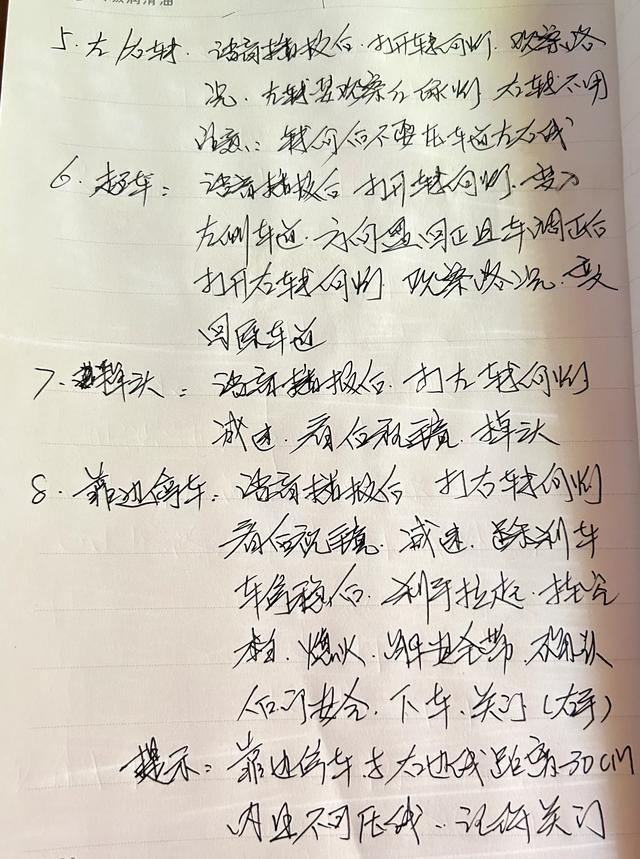 5. 左/右转. 语音播报后. 打开转向灯. 观察路
况. 左转要观察红绿灯 右转不用
注意: 转向后不要压车道左右线
6. 超车: 语音播报后 打开转向灯. 变入
左侧车道. 方向盘回正且车调正后
打开右转向灯. 观察路况. 变
回原车道
7. 掉头: 语音播报后. 打左转向灯
减速. 看后视镜. 掉头
8. 靠边停车: 语音播报后 打右转向灯
看后视镜. 减速. 踩刹车
车停稳后. 刹手拉起. 挂空
熄火. 解安全带. 确认
后门安全. 下车. 关门(右手)
提示: 靠边停车与右边线距离30CM
内且不可压线. 记住关门